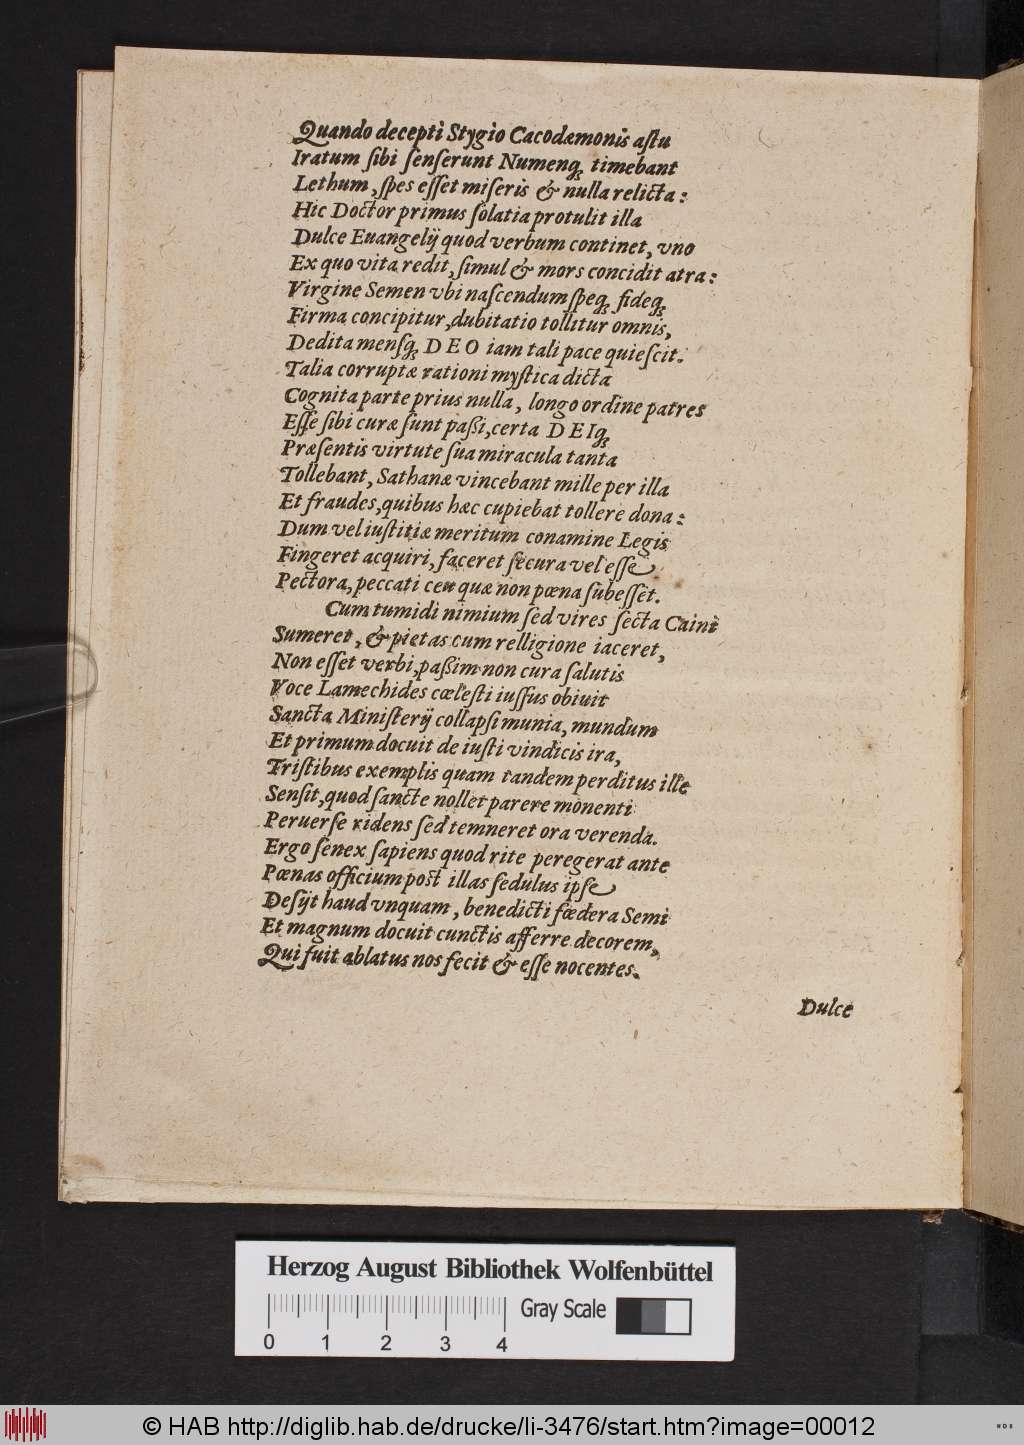 Quando decepti Stygio Cacodæmonis astu
Iratum sibi senserunt Numenq; timebant
Lethum, spes esset miseris & nulla relicta:
Hic Doctor primus solatia protulit illa
Dulce Euangelij quod verbum continet, vno
Ex quo vita redit, simul & mors concidit atra:
Virgine Semen vbi nascendum speq; fideq;
Firma concipitur, dubitatio tollitur omnis,
Dedita mensq; DEO iam tali pace quiescit.
Talia corruptæ rationi mystica dicta
Cognita parte prius nulla, longo ordine patres
Esse sibi curæ sunt passi, certa DEIq;
Præsentis virtute sua miracula tanta
Tollebant, Sathanæ vincebant mille per illa
Et fraudes, quibus hæc cupiebat tollere dona:
Dum vel iustitiæ meritum conamine Legis
Fingeret acquiri, faceret secura vel esse
Pectora, peccati ceu quæ non pœna subesset.
Cum tumidi nimium sed vires secta Caini
Sumeret, & pietas cum relligione iaceret,
Non esset verbi, passim non cura salutis
Voce Lamechides cœlesti iussus obiuit
Sancta Ministerij collapsi munia, mundum
Et primum docuit de iusti vindicis ira,
Tristibus exemplis quam tandem perditus ille
Sensit, quod sancte nollet parere monenti
Peruerse ridens sed temneret ora verenda.
Ergo senex sapiens quod rite peregerat ante
Pœnas officium post illas sedulus ipse
Desijt haud vnquam, benedicti fœdera Semi
Et magnum docuit cunctis afferre decorem,
Qui fuit ablatus nos fecit & esse nocentes.
Dulce
Herzog August Bibliothek Wolfenbüttel
Gray Scale
0 1 2 3 4
© HAB http://diglib.hab.de/drucke/li-3476/start.htm?image=00012